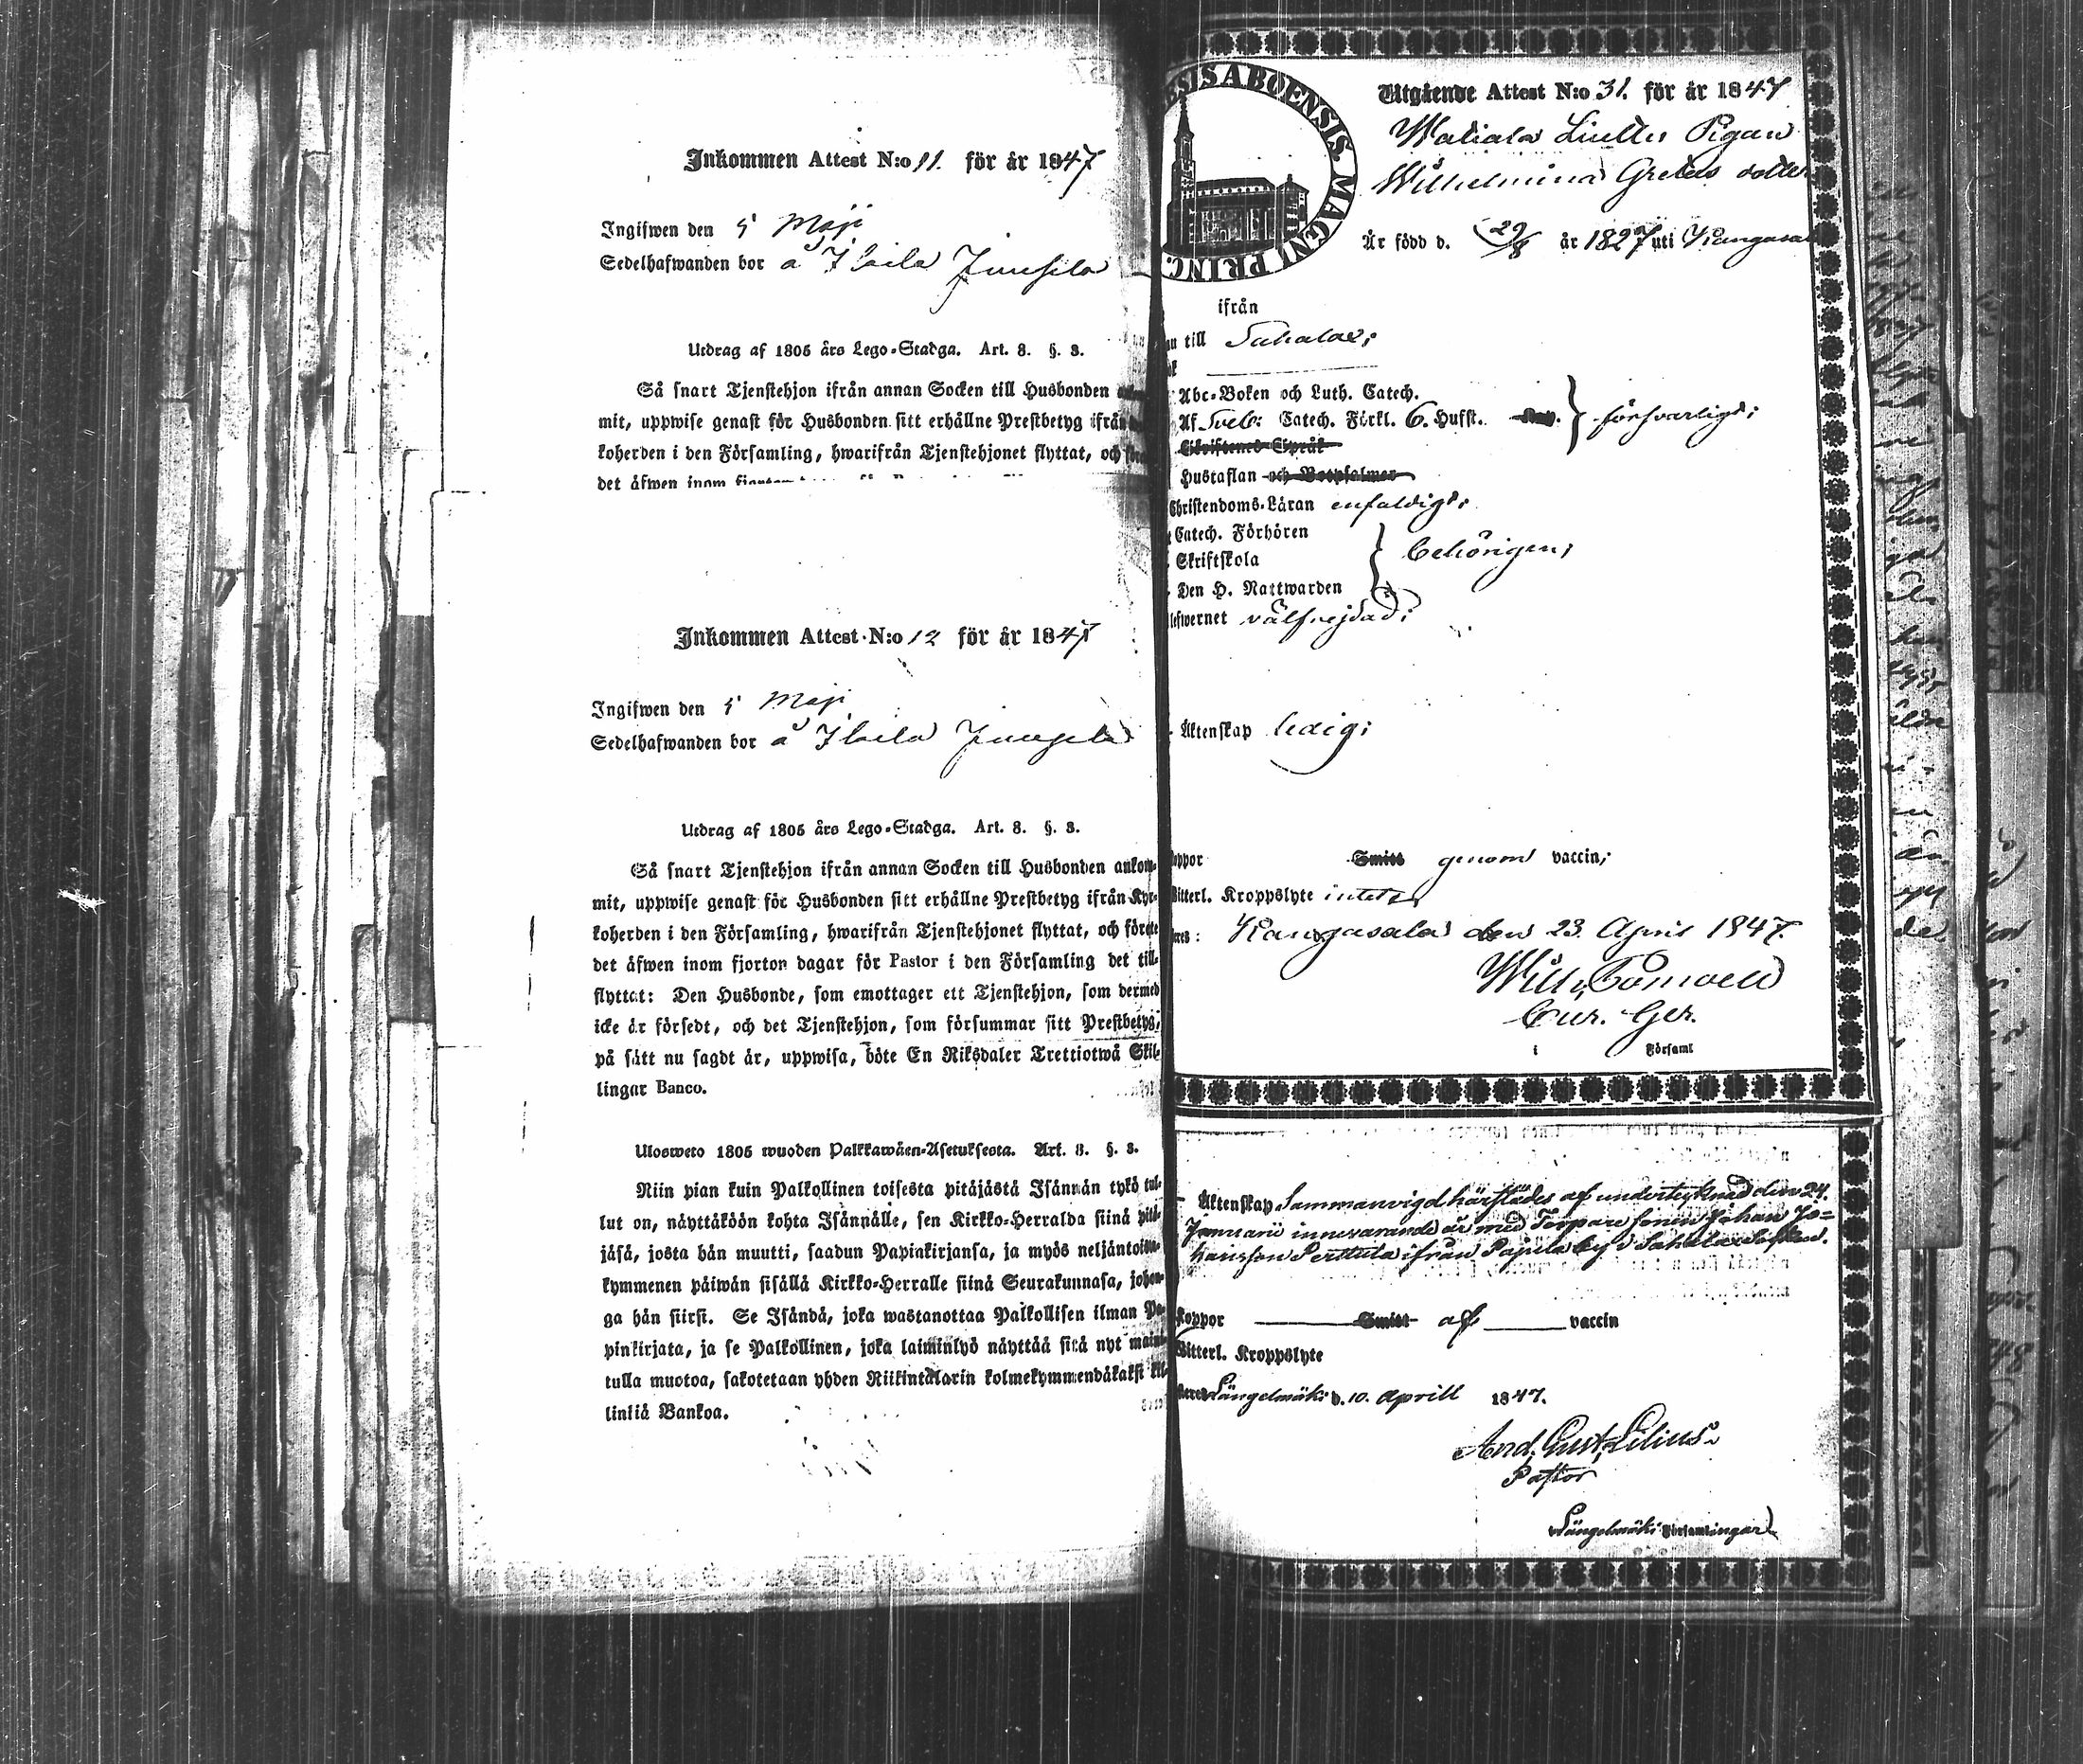 Inkommen Attest N:o 11. för år 1847
Ingifwen den 5 Maji
Sedelhafwanden bor å Ilkila
Utdrag af 1805 års Lego-Stadga. Art. 8. §. 3.
Så snart Tjenstehjon ifrån annan Socken till Husbonden
mit, uppwise genast för Husbonden sitt erhållne Prestbetyg ifrån
koherden i den Församling, hwarifrån Tjenstehjonet flyttat, och
det äfwen inom fjorton
Inkommen Attest N:o 12 för år 1847
Ingifwen den 5 Maji
Sedelhafwanden bor å Ilkila
Utdrag af 1805 års Lego-Stadga. Art. 8. §. 3.
Så snart Tjenstehjon ifrån annan Socken till Husbonden ankom-
mit, uppwise genast för Husbonden sitt erhållne Prestbetyg ifrån Kyr-
koherden i den Församling, hwarifrån Tjenstehjonet flyttat, och förete
det äfwen inom fjorton dagar för Pastor i den Församling det till-
flyttat: Den Husbonde, som emottager ett Tjenstehjon, som dermed
icke är försedt, och det Tjenstehjon, som försummar sitt Prestbetyg,
på sätt nu sagdt är, uppwisa, böte En Riksdaler Trettiotwå Skil-
lingar Banco.
Ulosweto 1805 wuoden Palkkawäen-Asetuksesta. Art. 8. §. 3.
Niin pian kuin Palkollinen toisesta pitäjästä Isännän tykö tul-
lut on, näyttäköön kohta Isännälle, sen Kirkko-Herralda siinä pitä-
jäsä, josta hän muutti, saadun Papinkirjansa, ja myös neljäntois-
kymmenen päiwän sisällä Kirkko-Herralle siinä Seurakunnasa, johon-
ga hän siirsi. Se Isändä, joka wastanottaa Palkollisen ilman Pa-
pinkirjata, ja se Palkollinen, joka laiminlyö näyttää sitä nyt maini-
tulla muotoa, sakotetaan yhden Riikintalarin kolmekymmendäkaksi kil-
linkiä Bankoa.
ESIS ABOENSIS. MAGNI PRINC.
Utgående Attest N:o 31. för år 1847
Pigan
Wilhelmina Gretas dotter
Är född d. 29/8 år 1827 uti Kangasala
ifrån
till Sahalax;
Abc-Boken och Luth. Catech.
Af Sveb: Catech. Förkl. 6. Hufst. försvarligt;
Skriftenes Språk
Hustaflan och Botpsalmer
Christendoms-Läran enfaldigt;
Catech. Förhören
Skriftskola behörigen;
Den H. Nattwarden
lefwernet välfrejdad;
Äktenskap ledig;
oppor Smitt genom vaccin;
Witterl. Kroppslyte intet
Kangasala den 23. April 1847.
Cur. Ger.
i Församl
Äktenskap Sammanvigd härstädes af undertecknad den 24.
Januarii innevarande år med Torpare sonen Johan Jo=
hansson Perttula ifrån Pajula by i Sahalax Socken.
Koppor Smitt af vaccin
Witterl. Kroppslyte
Längelmäki d. 10. Aprill 1847.
And. Gust. Lilius.
Pastor
Längelmäki Församlingar